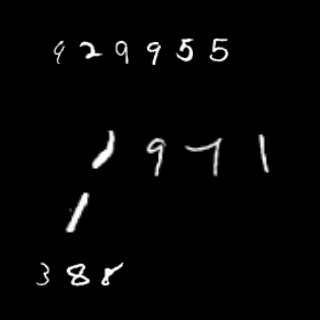 929955
1971
1
388